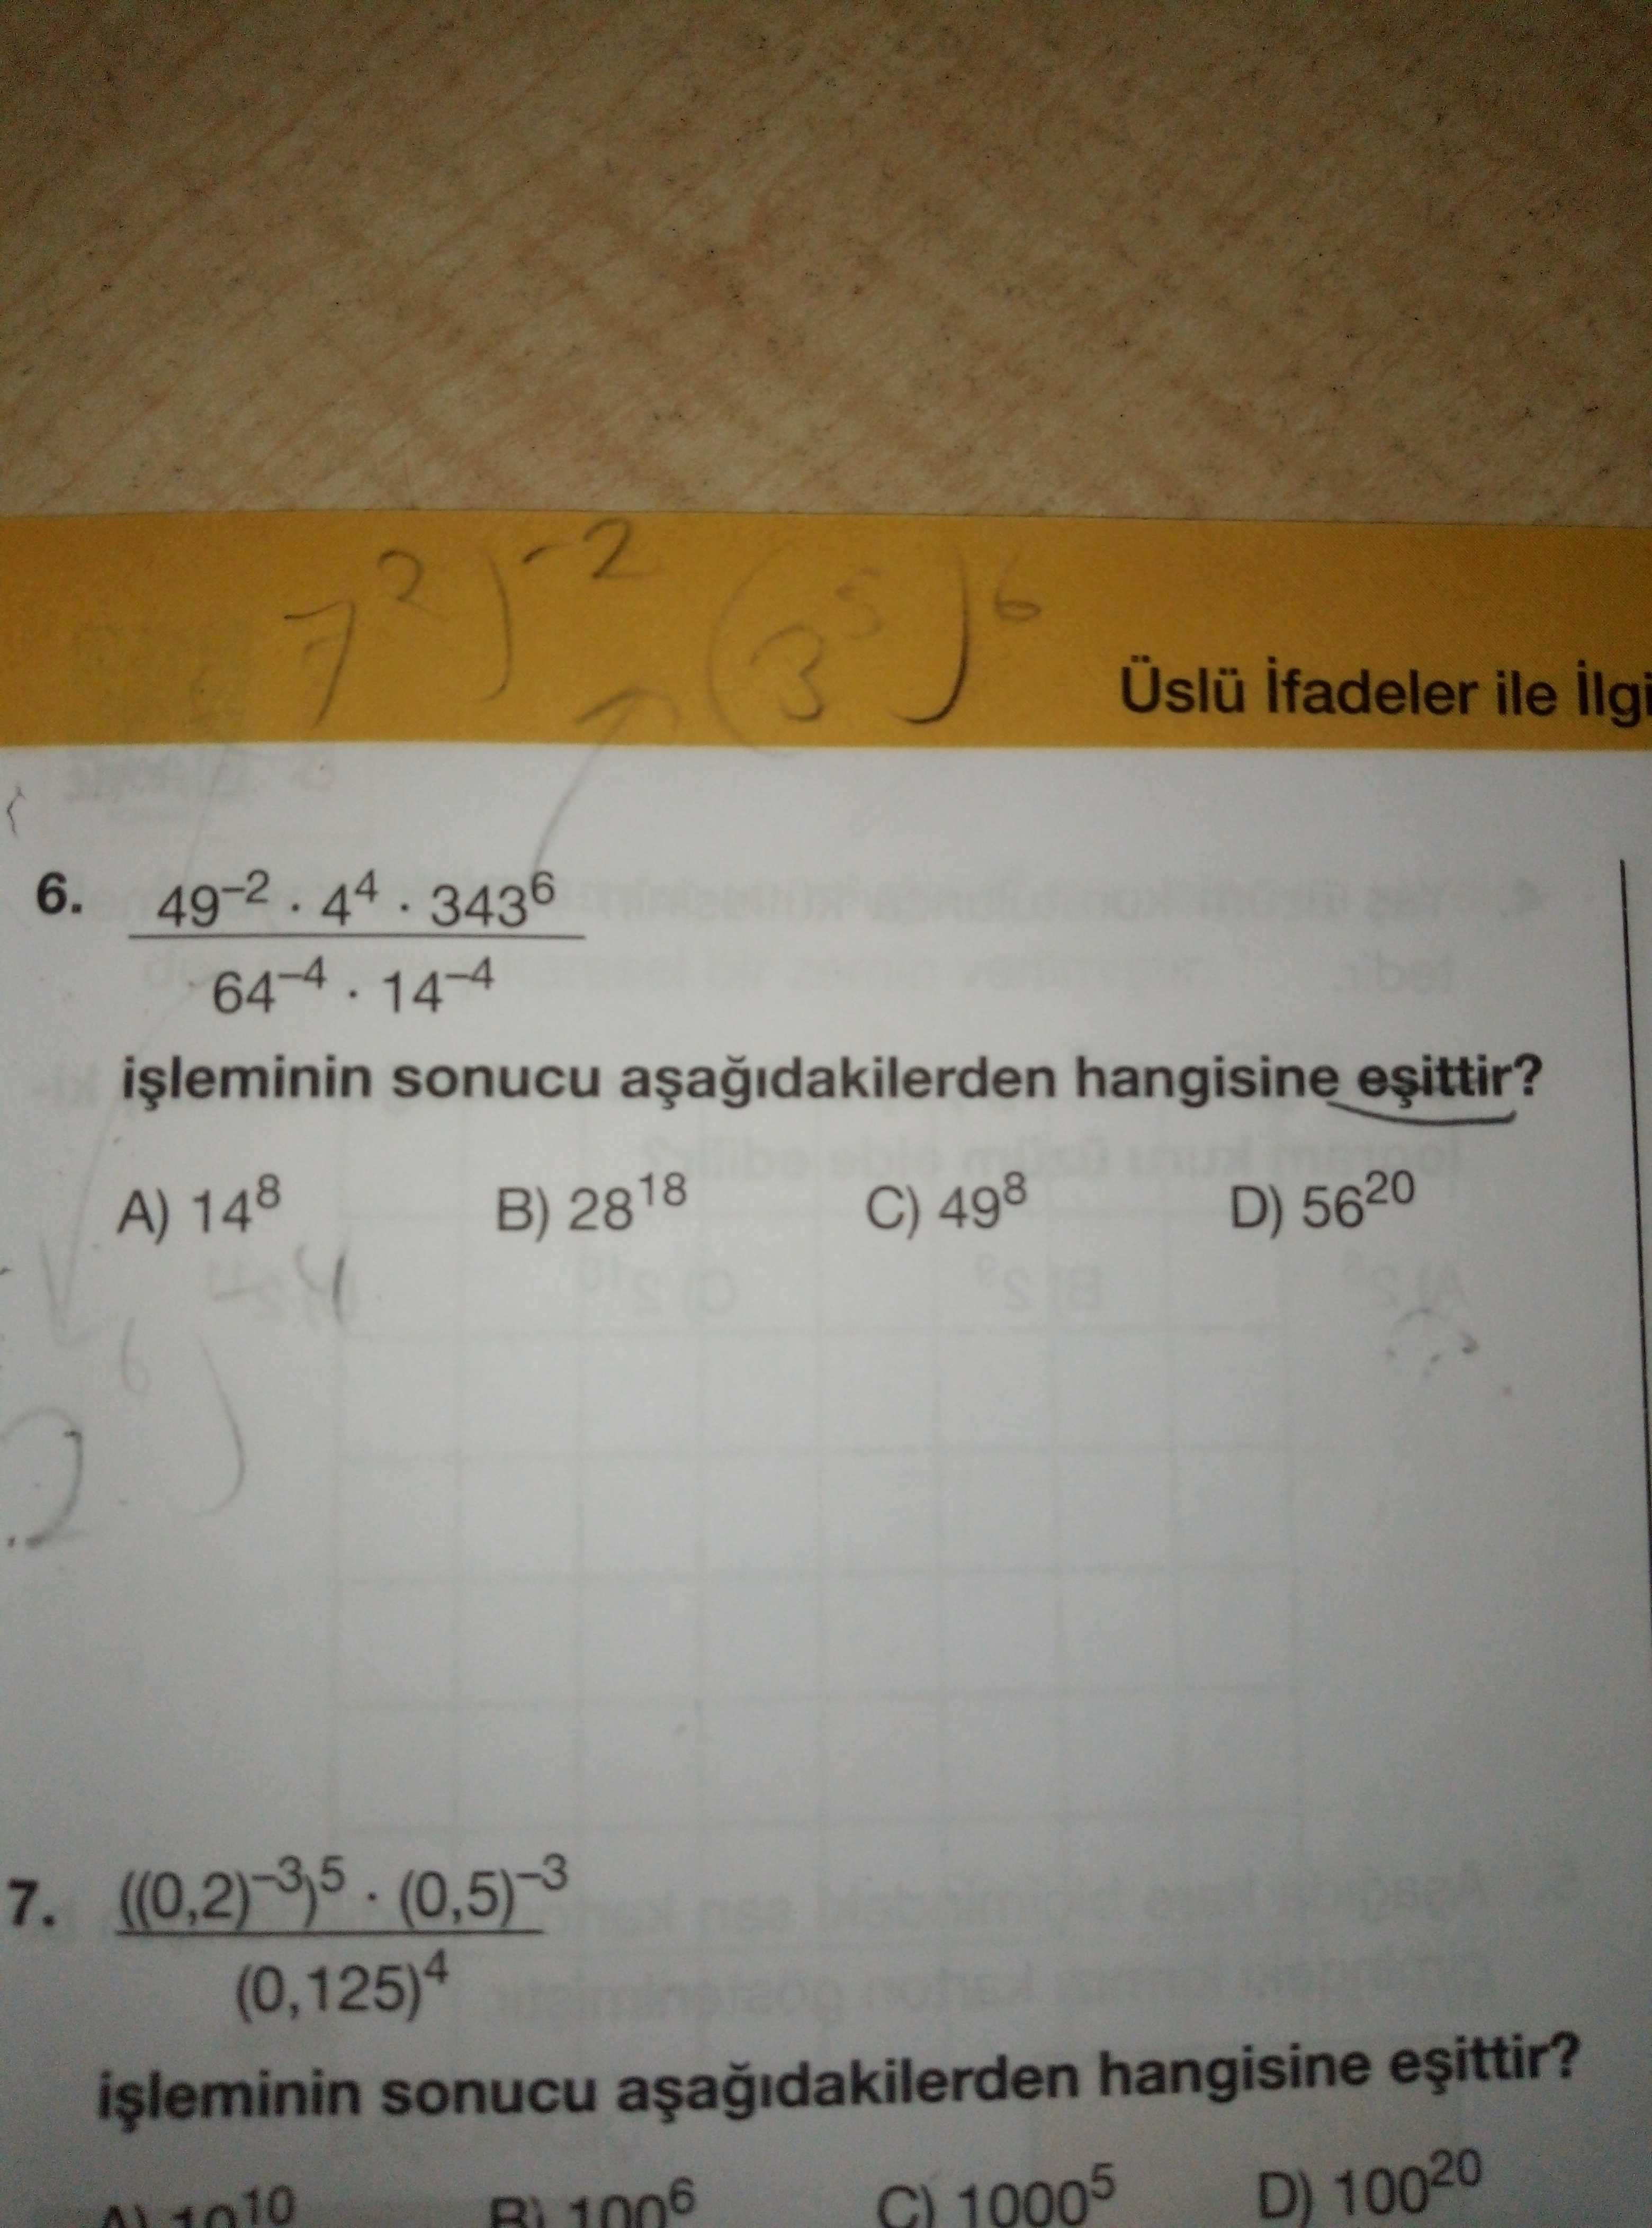 7²)⁻² (3⁵)⁶
Üslü İfadeler ile İlgi
6. 49⁻² · 4⁴ · 343⁶
64⁻⁴ · 14⁻⁴
işleminin sonucu aşağıdakilerden hangisine eşittir?
A) 14⁸ B) 28¹⁸ C) 49⁸ D) 56²⁰
7. ((0,2)⁻³)⁵ · (0,5)⁻³
(0,125)⁴
işleminin sonucu aşağıdakilerden hangisine eşittir?
A) 10¹⁰ B) 100⁶ C) 1000⁵ D) 100²⁰